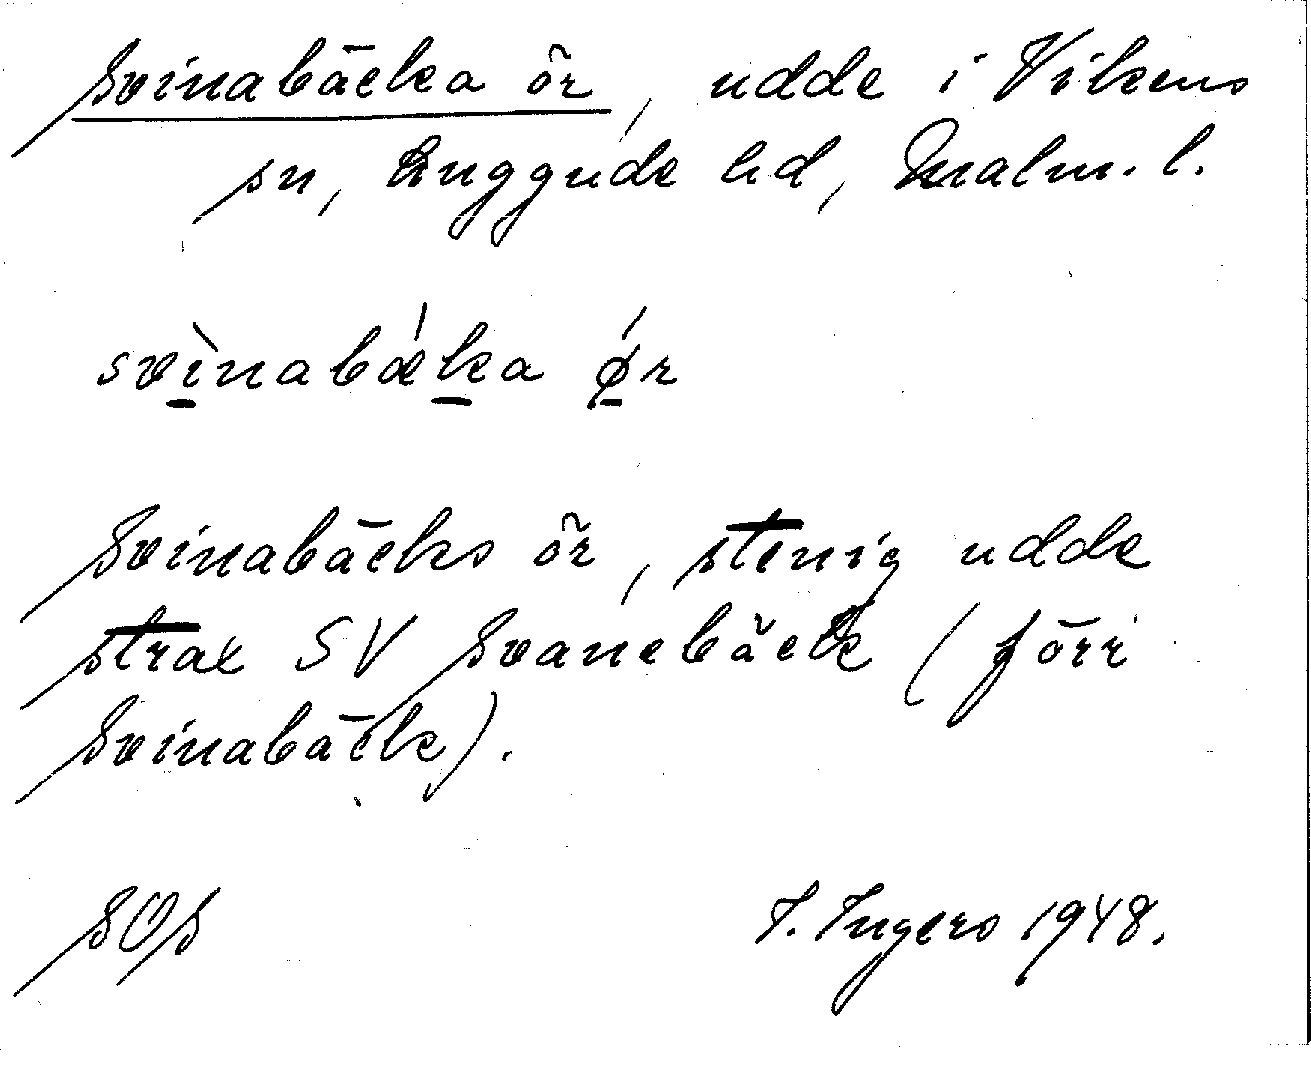 Svinabäcka ör, udde i Vikens
sn, Luggude hd, Malm. l.
svìnabǽka ǿr
Svinabäcks ör, stenig udde
strax SV Svanebäck (förr
Svinabäck).
SOS
I. Ingers 1948.